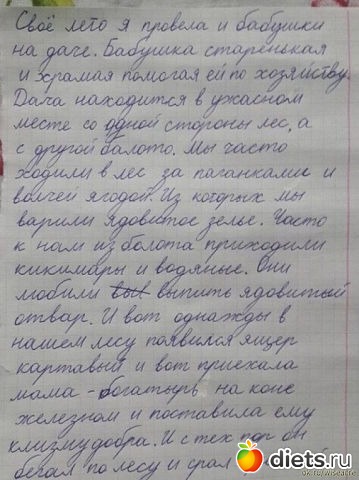 Своё лето я провела и бабушки
на даче. Бабушка старенькая
и храмая помогая ей по хозяйству
Дача находится в ужасном
месте со одной стороны лес, а
с другой балото. Мы часто
ходили в лес за паганками и
волчей ягодой. Из которых мы
варили ядовитое зелье. Часто
к нам из болота приходили
кикимары и водяные. Они
любили выпить ядовитый
отвар. И вот однажды в
нашем лесу появился ящер
картавый и вот приехала
мама - богатырь на коне
железном и поставила ему
клизму добра. И с тех пор он
бегал по лесу и срал
diets.ru